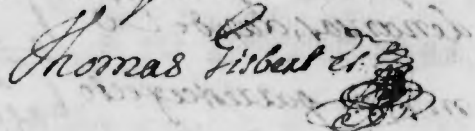 Thomas Gisbert